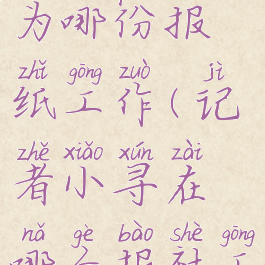 为哪份报
zhǐ gōng zuò jì
纸工作(记
zhě xiǎo xún zài
者小寻在
nǎ gè bào shè gōng
哪个报社工